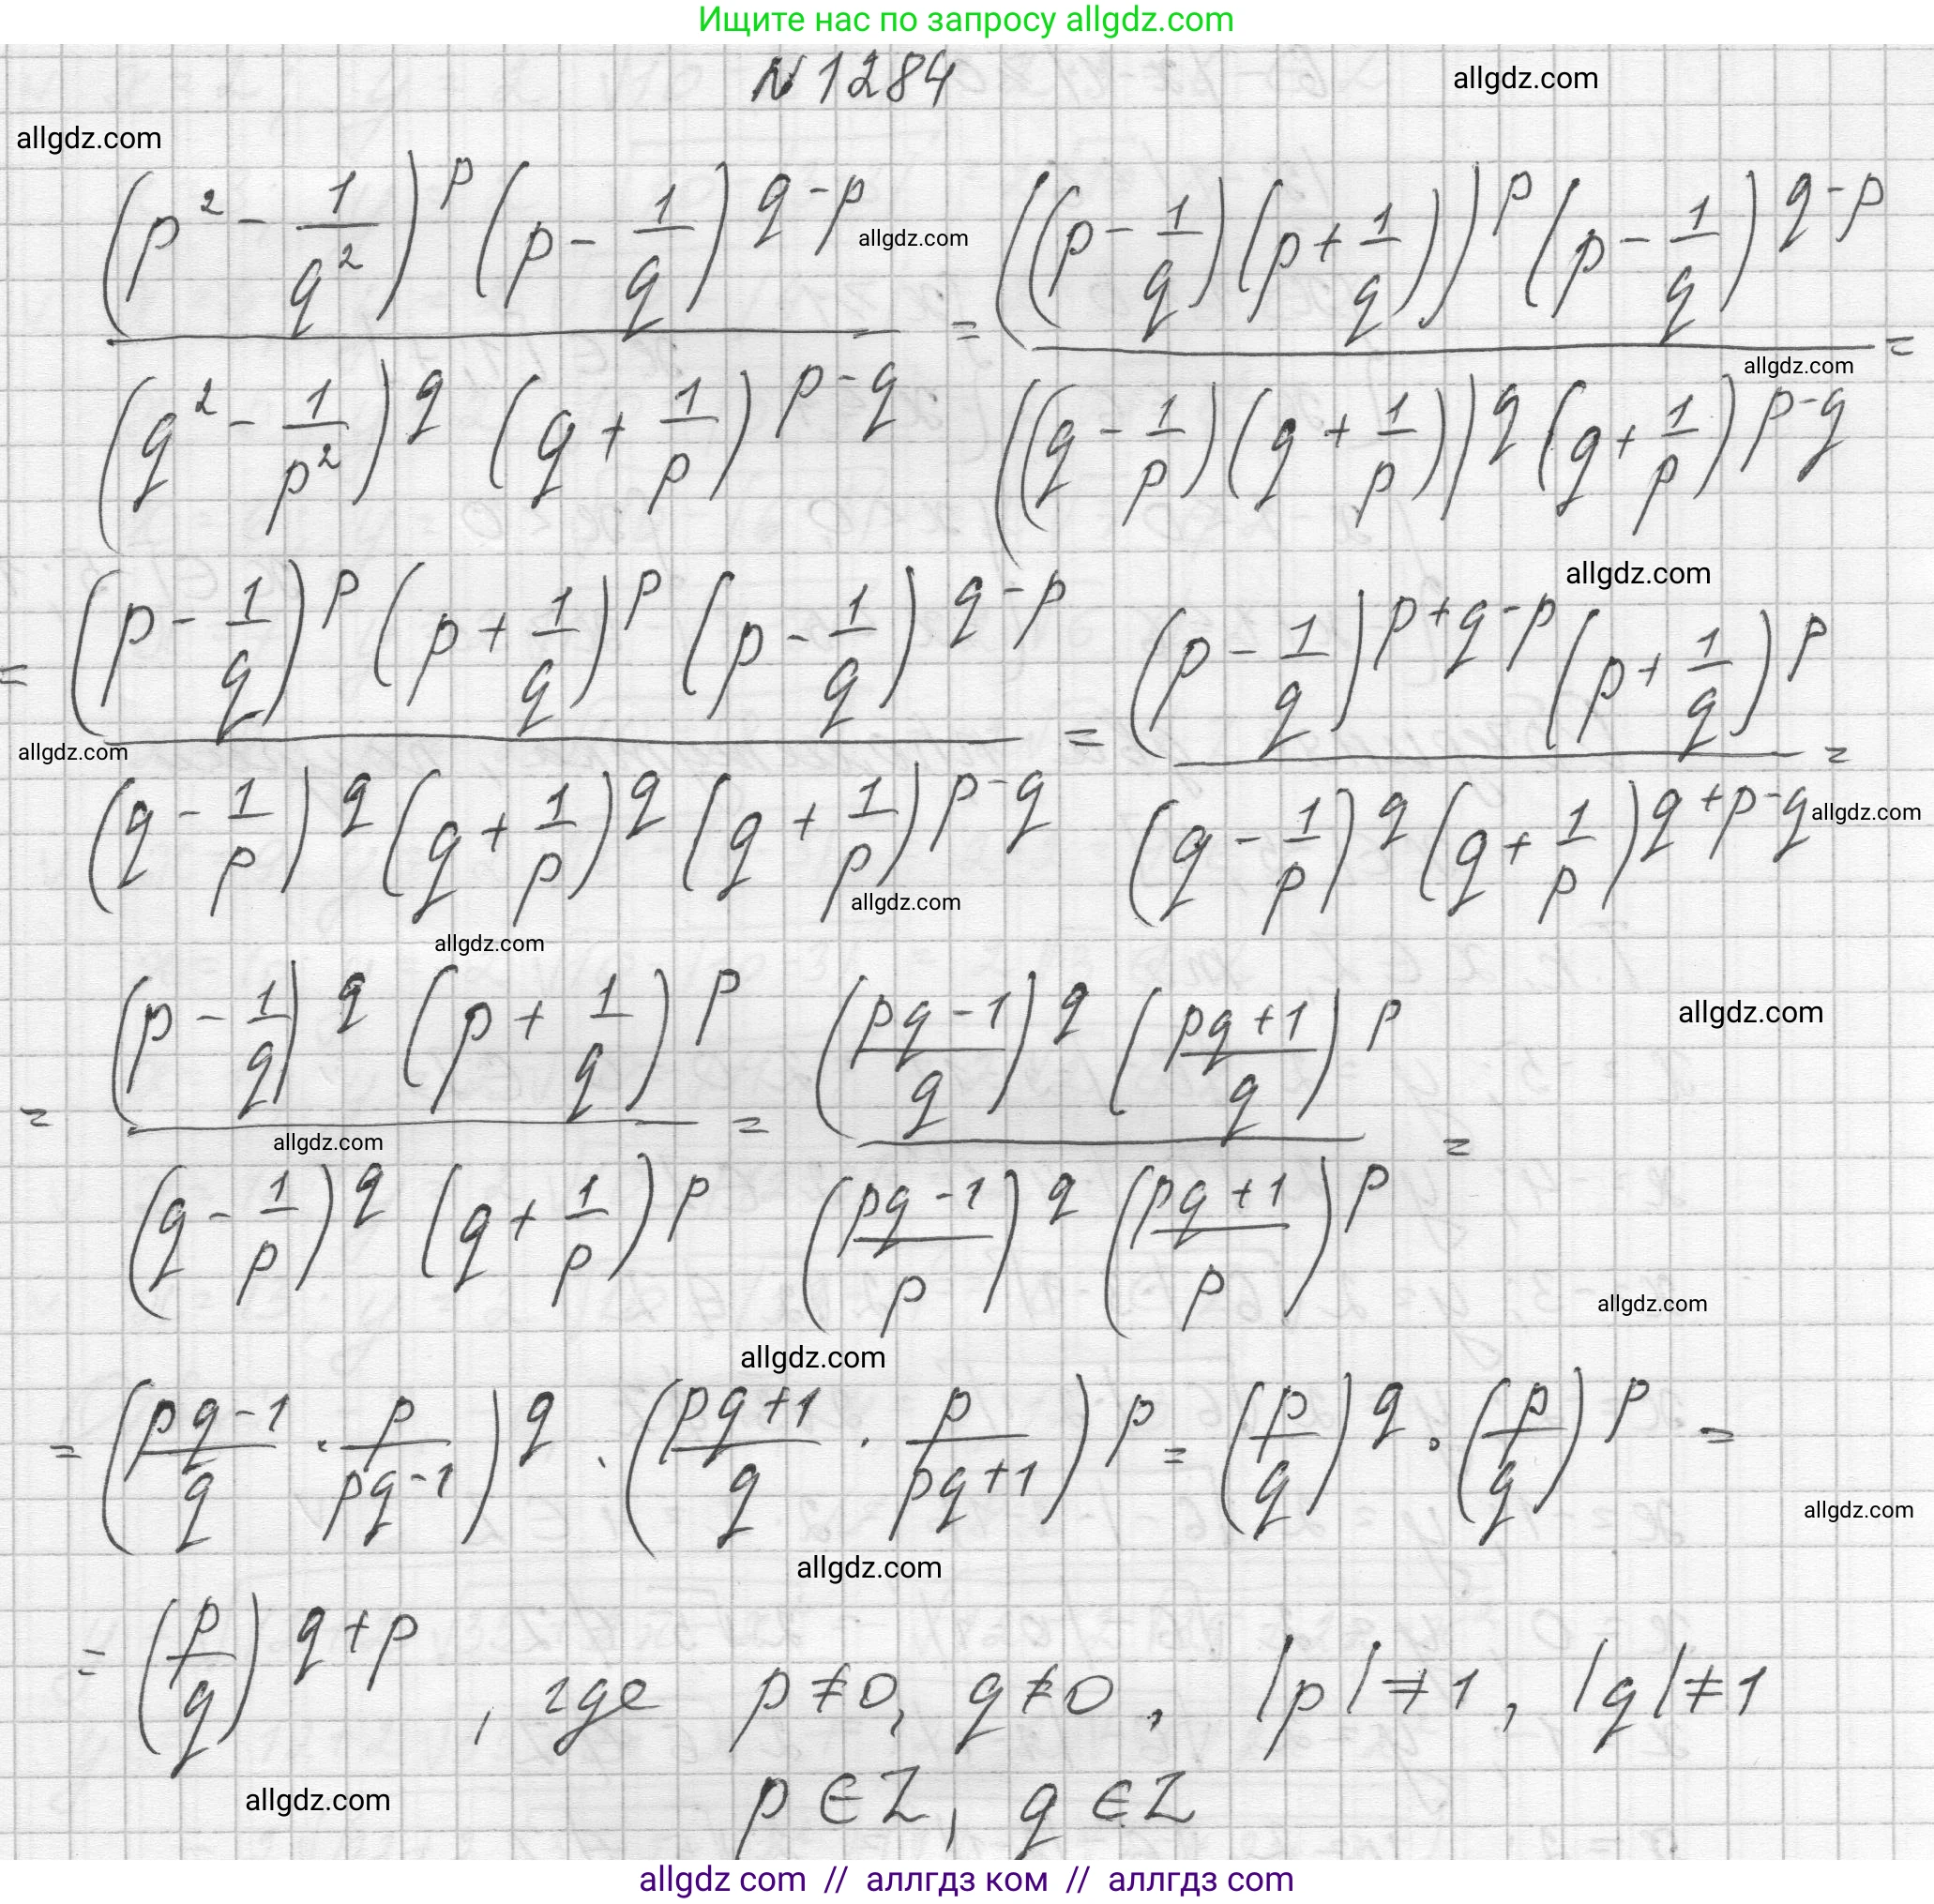 Ищите нас по запросу allgdz.com
№1284
allgdz.com
allgdz.com
(p² - 1/q²)^p (p - 1/q)^(q-p) / (q² - 1/p²)^q (q + 1/p)^(p-q) = ((p - 1/q)(p + 1/q))^p (p - 1/q)^(q-p) / ((q - 1/p)(q + 1/p))^q (q + 1/p)^(p-q) =
allgdz.com
allgdz.com
allgdz.com
= (p - 1/q)^p (p + 1/q)^p (p - 1/q)^(q-p) / (q - 1/p)^q (q + 1/p)^q (q + 1/p)^(p-q) = (p - 1/q)^(p+q-p) (p + 1/q)^p / (q - 1/p)^q (q + 1/p)^(q+p-q) =
allgdz.com
allgdz.com
allgdz.com
allgdz.com
allgdz.com
= (p - 1/q)^q (p + 1/q)^p / (q - 1/p)^q (q + 1/p)^p = ((pq-1)/q)^q ((pq+1)/q)^p / ((pq-1)/p)^q ((pq+1)/p)^p =
allgdz.com
allgdz.com
allgdz.com
= ((pq-1)/q · p/(pq-1))^q · ((pq+1)/q · p/(pq+1))^p = (p/q)^q · (p/q)^p =
allgdz.com
allgdz.com
= (p/q)^(q+p), где p≠0, q≠0, |p|≠1, |q|≠1
p∈Z, q∈Z
allgdz.com
allgdz com // аллгдз ком // аллгдз com